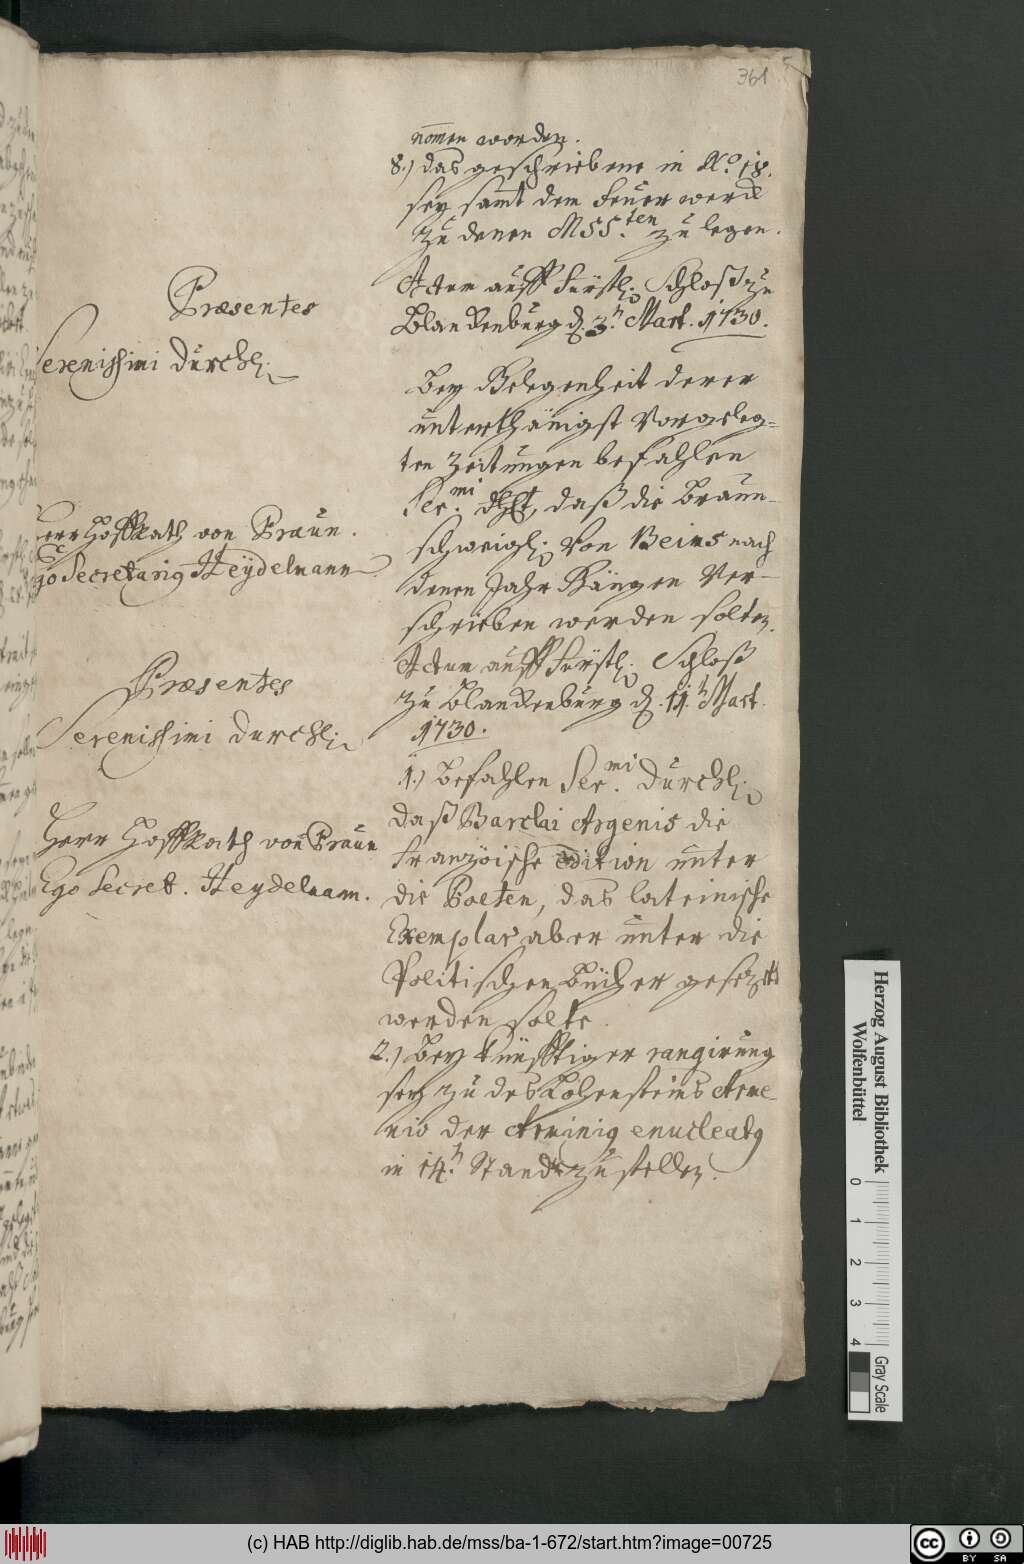 361
nomen worden.
8.) das geschriebene in No. 18.
sey samt dem Feuerwerck
zu denen MSS.ten zu legen.
Præsentes
Serenissimi Durchl.
Herr Hoffrath von Praun.
Ego Secretarius Heydelmann
Actum auff Fürstl. Schloß zu
Blanckenburg d. 3.t Mart. 1730.
Bey Gelegenheit derer
unterthänigst vorgeleg=
ten Zeitungen befahlen
Ser.mi daß die Braun-
schweigl. von Beims nach
denen Jahr Gängen ver-
schrieben werden solten.
Præsentes
Serenissimi Durchl.
Herr Hoffrath von Praun
Ego Secret. Heydelmann.
Actum auff Fürstl. Schloß
zu Blanckenburg d. 11.t Mart.
1730.
1.) befahlen Ser.mi Durchl.
daß Barclai Argenis die
Französische edition unter
die Poeten, das lateinische
Exemplar aber unter die
Politischen Bücher gesetzt
werden solte.
2.) Bey künfftiger rangirung
sey zu des Lohensteins Armi-
nio der Arminius enucleatus
in 14.t Stand zu stellen.
Herzog August Bibliothek
Wolfenbüttel
0 1 2 3 4
Gray Scale
(c) HAB http://diglib.hab.de/mss/ba-1-672/start.htm?image=00725
cc BY SA